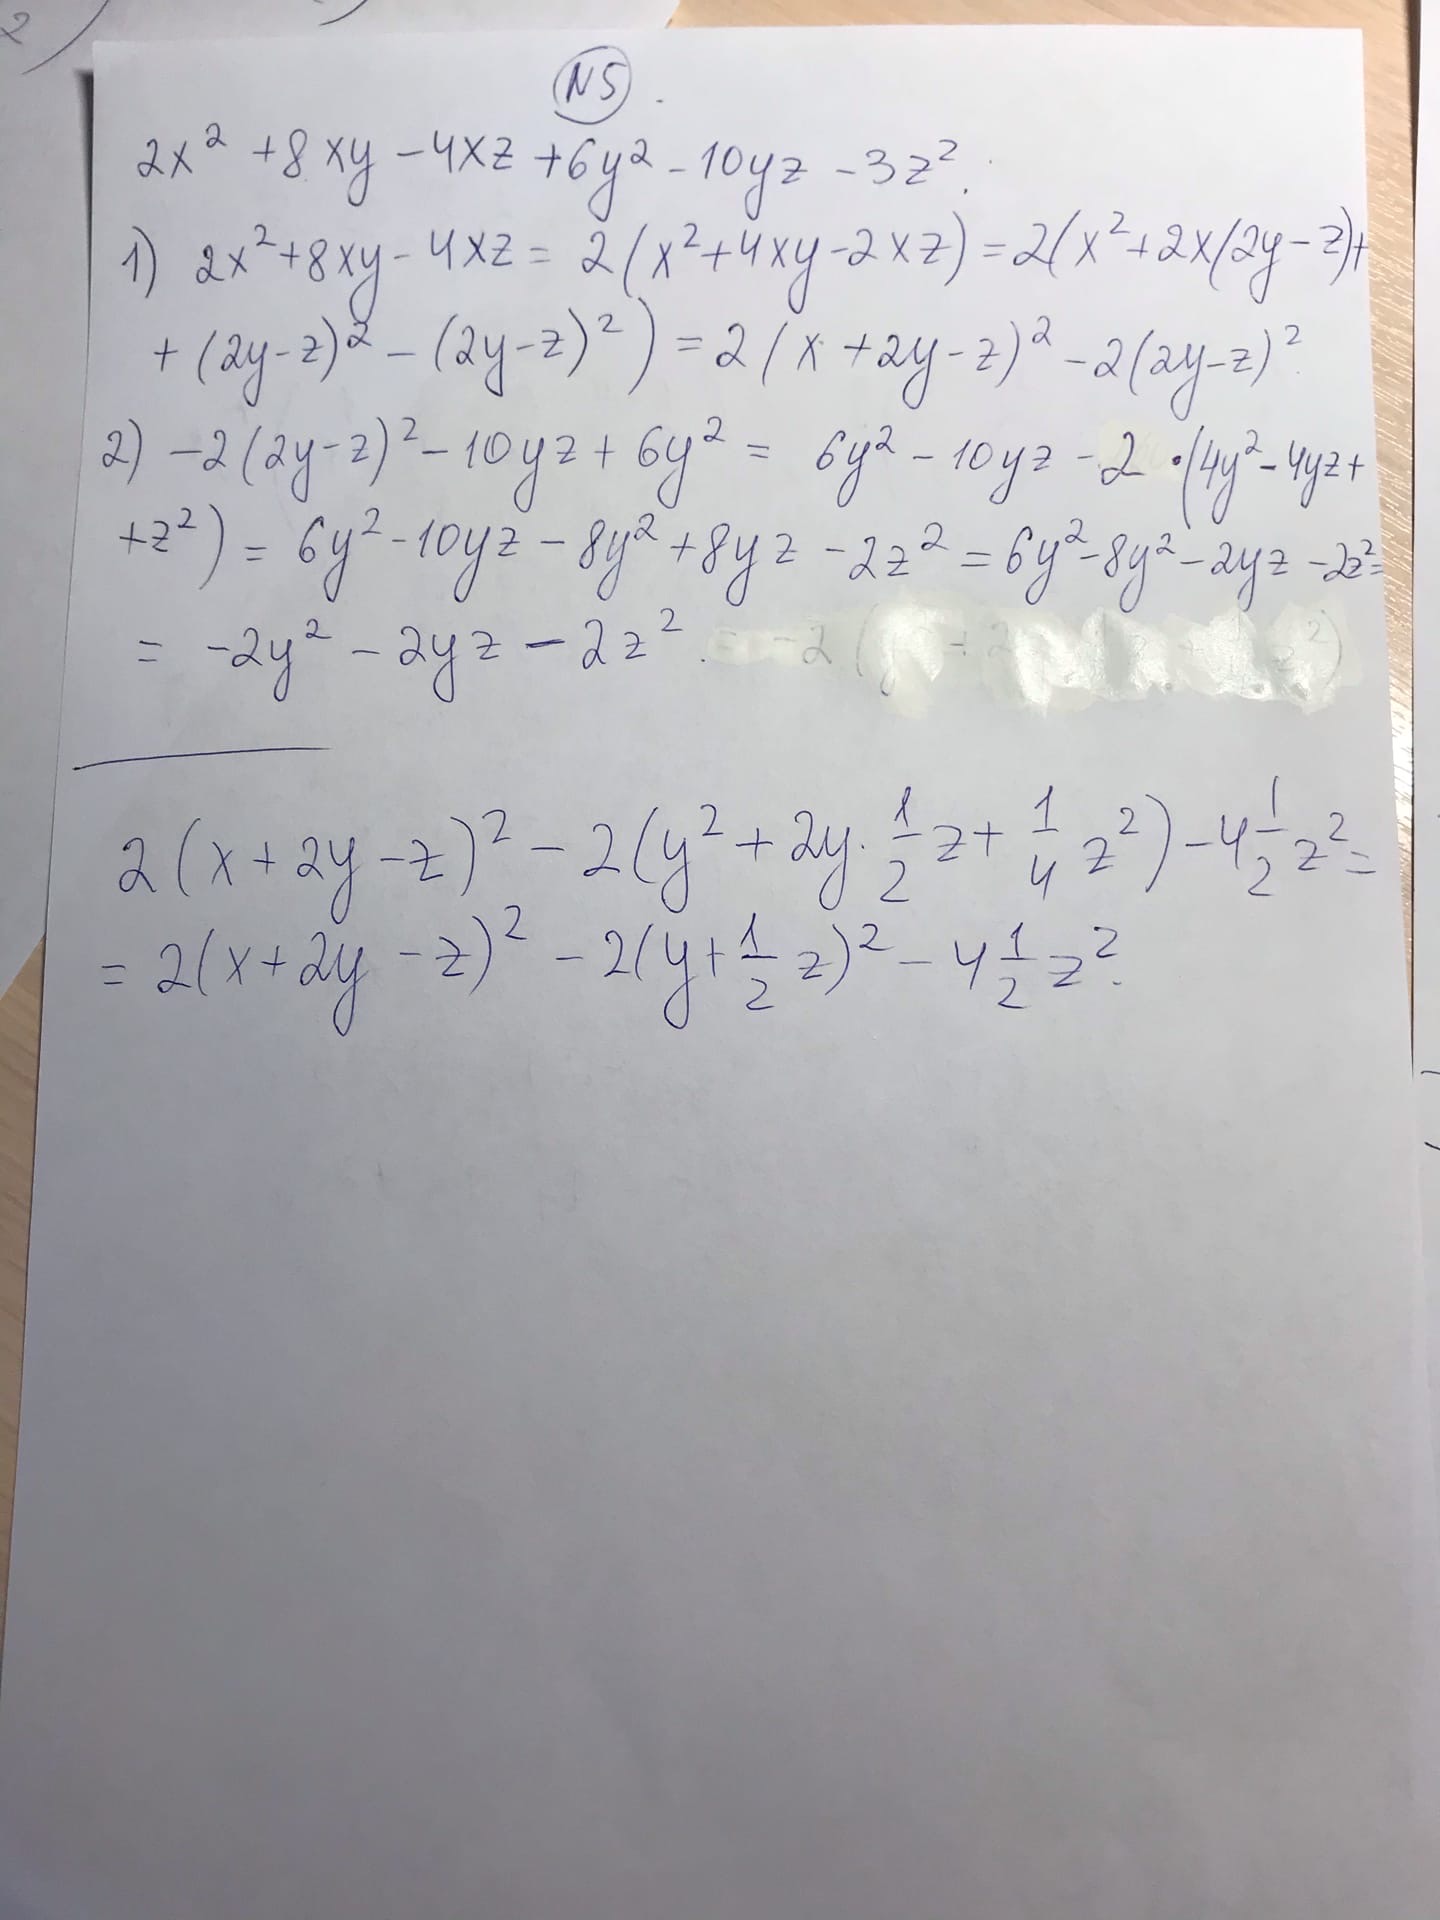 N5.
2x² + 8xy - 4xz + 6y² - 10yz - 3z².
1) 2x² + 8xy - 4xz = 2(x² + 4xy - 2xz) = 2(x² + 2x(2y - z) +
+ (2y - z)² - (2y - z)²) = 2(x + 2y - z)² - 2(2y - z)²
2) -2(2y - z)² - 10yz + 6y² = 6y² - 10yz - 2·(4y² - 4yz +
+ z²) = 6y² - 10yz - 8y² + 8yz - 2z² = 6y² - 8y² - 2yz - 2z² =
= -2y² - 2yz - 2z².
2(x + 2y - z)² - 2(y² + 2y·1/2 z + 1/4 z²) - 4 1/2 z² =
= 2(x + 2y - z)² - 2(y + 1/2 z)² - 4 1/2 z².